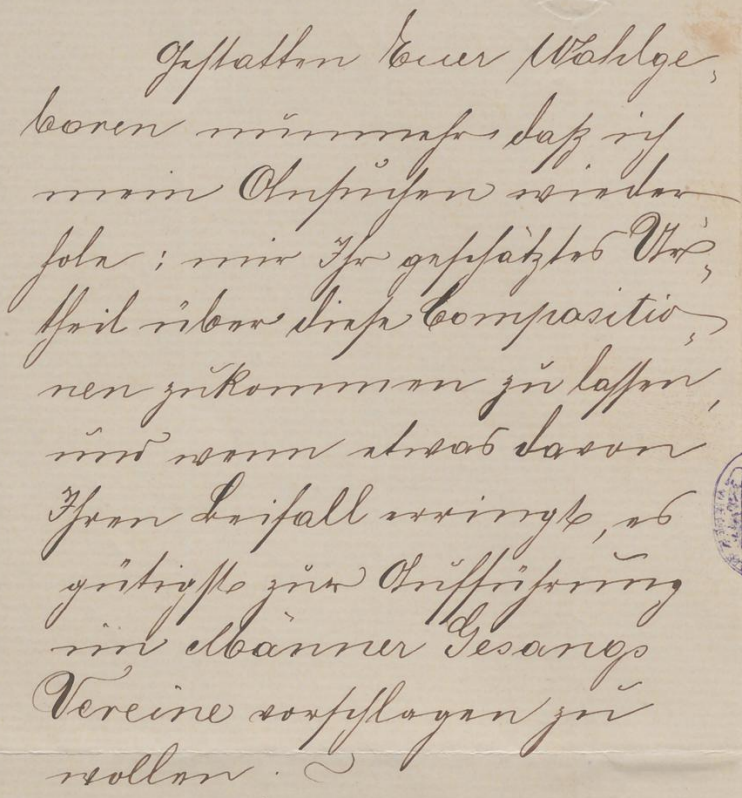 Gestatten Euer Wohlge-
boren nunmehr, daß ich
mein Ansuchen wieder
hole: mir Ihr geschätztes Ur-
theil über diese Compositio-
nen zukommen zu lassen,
und wenn etwas davon
Ihren Beifall erringt, es
gütigst zur Aufführung
im Männer Gesangs
Vereine vorschlagen zu
wollen.